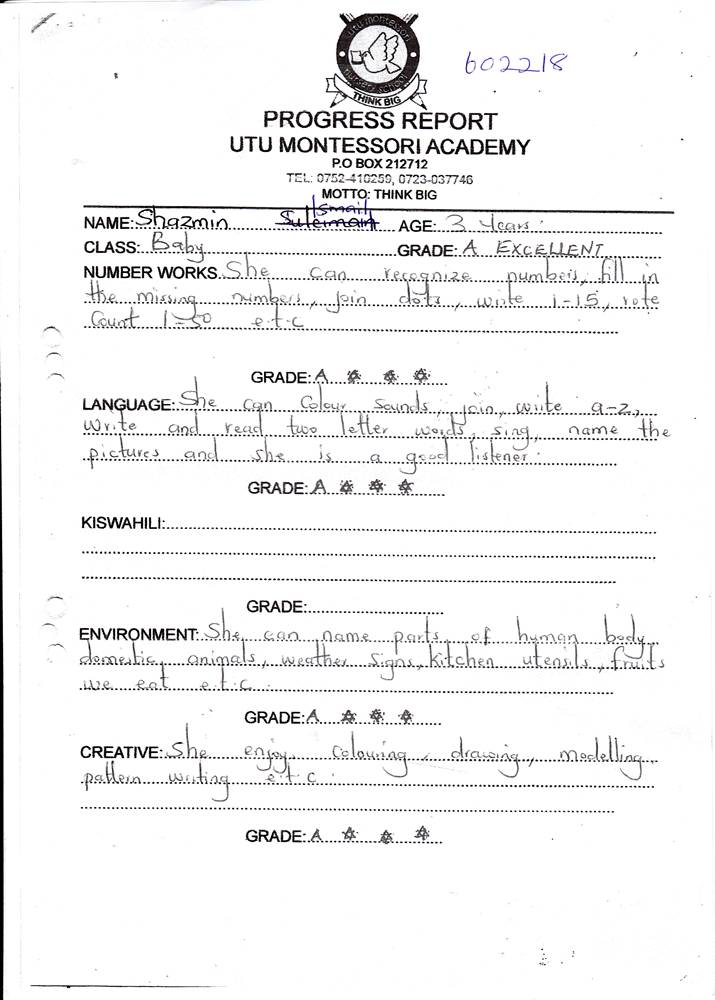 utu montessori
nursery school
THINK BIG
602218
PROGRESS REPORT
UTU MONTESSORI ACADEMY
P.O BOX 212712
TEL: 0752-410259, 0723-037746
MOTTO: THINK BIG
Ismail
NAME: Shazmin Suleiman AGE: 3 years.
CLASS: Baby GRADE: A EXCELLENT
NUMBER WORKS She can recognize numbers, fill in
the missing numbers, join dots, write 1-15, rote
Count 1-50 e.t.c
GRADE: A
LANGUAGE: She can Colour Sounds, join, write a-z,
Write and read two letter words, sing, name the
pictures and she is a good listener.
GRADE: A
KISWAHILI:
GRADE:
ENVIRONMENT: She can name parts of human body,
domestic animals, weather signs, kitchen utensils, fruits
we eat e.t.c.
GRADE: A
CREATIVE: She enjoy Colouring, drawing, modelling,
pattern writing e.t.c.
GRADE: A